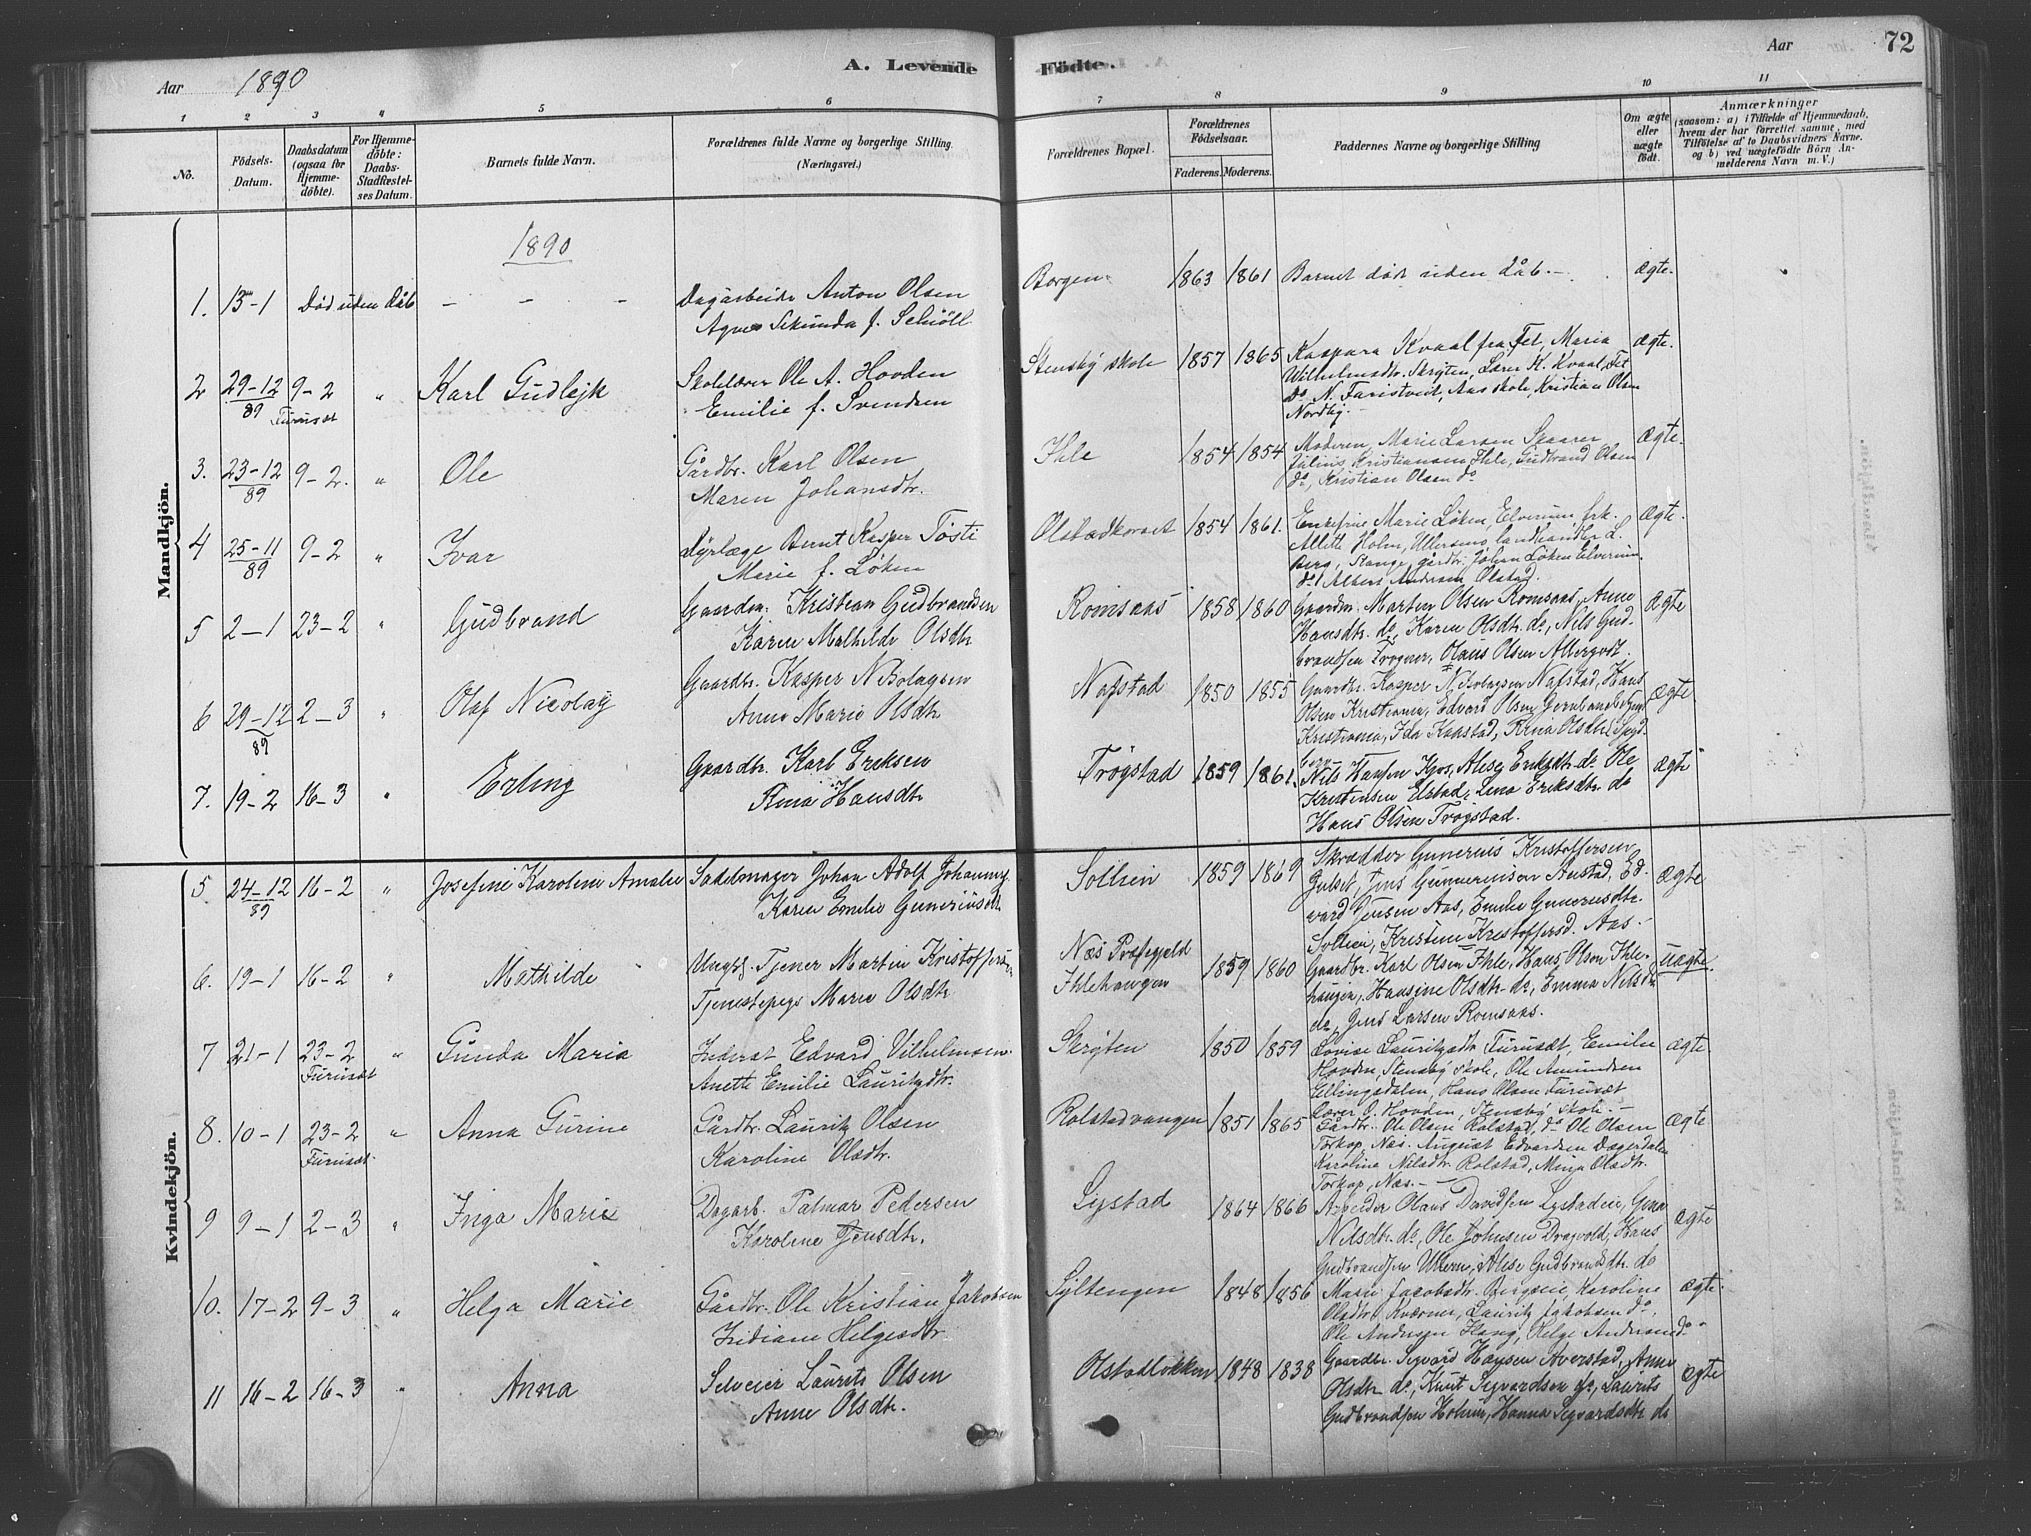 A. Levende Fødte. 72
Aar 1890 Aar
1 2 3 4 5 6 7 8 9 10 11
No.
Födsels-
Datum.
Daabsdatum
(ogsaa for
Hjemme-
döbte).
For Hjemme-
döbte:
Daabs-
Stadfæstel-
ses Datum.
Barnets fulde Navn.
Forældrenes fulde Navne og borgerlige Stilling.
(Næringsvei.)
Forældrenes Bopæl.
Forældrenes
Födselsaar.
Faderens. Moderens.
Faddernes Navne og borgerlige Stilling
Om ægte
eller
uægte
födt.
Anmærkninger
(saasom: a) i Tilfælde af Hjemmedaab,
hvem der har forrettet samme, med
Tilföielse af to Daabsvidners Navne.
og b) ved uægtefödte Börn An-
melderens Navn m. V.)
Mandkjön.
1890
1. 13-1 Död uden Dåb - - -
Dagarbeider Anton Olsen
Agnes Sekunda f. Schiöll
Borgen 1863 1861 Barnet död uden dåb. - Ægte.
2 29-12 9-2 " Karl Gudlejk
89 Furuset
Skolelærer Ole A. Hovden
Emilie f. Svendsen
Stensby skole 1857 1865 Kaspara Kvaal fra Fet, Maria Ægte.
Wilhelmsdtr. Skrÿten, Lærer K. Kvaal, Fet
do N. Faristveit, Aas skole, Kristian Olsen
Nordby. -
3. 23-12 9-2. " Ole
89
Gårdbr. Karl Olsen
Maren Johansdtr.
Ihle 1854 1854 Moderen, Marie Larsen Skaarer Ægte.
Julius Kristiansen Ihle, Gudbrand Olsen
do, Kristian Olsen do
4 25-11 9-2 " Ivar
89
Dyrlæge Bernt Kasper Tosti
Marie f. Løken
Olstadkorset 1854 1861. Enkefrue Marie Løken, Elverum frk. Ægte.
Holm, Ullersmo, landhandler L.
Berg, Stange, gårdbr. Johan Løken Elverum
do, Albert Andersen Olstad.
5 2-1 23-2 " Gudbrand
Gaardm. Kristian Gudbrandsen
Karen Mathilde Olsdtr
Romsaas 1858 1860 Gaardm. Martin Olsen Romsaas, Anne Ægte
Hansdtr. do, Karen Olsdtr. do, Nils Gud-
brandsen Trogner, Olaus Olsen
6 29-12 2-3 " Olaf Nicolay
89
Gaardbr. Kasper Nikolaysen
Anne Marie Olsdtr
Nafstad 1850 1855 Gaardbr. Kasper Nikolaysen Nafstad, Hans Ægte
Olsen Kristiania, Edvard Olsen
Kristiania, Ida Kaastad, Rina Olsdtr
7. 19-2 16-3 " Erling
Gaardbr. Karl Eriksen
Rina Hansdtr
Trøgstad 1859 1861. Nils Hansen Kjos, Alise Eriksdtr. do. Ole Ægte
Kristensen Elstad, Lina Eriksdtr. do
Hans Olsen Trøgstad.
Kvindekjön.
5 24-12 16-2 " Josefine Karoline Amalie
89
Sadelmager Johan Adolf Johannes
Karen Emilie Gunerius dtr
Sollien 1859 1869 Skrædder Gunerius Kristoffersen Ægte
Gulset, Jens Gunnerensen Austad, Ed-
vard Jensen Aas, Emilie Gunerusdtr.
Sollien, Kristine Kristoffersd. Aas. -
6. 19-1 16-2 " Mathilde
Ungkl. Tjener Martin Kristoffersen
Tjenestepige Marie Olsdtr
Næs Præstegjeld
Ihlehaugen 1859 1860 Gaardbr. Karl Olsen Ihle, Hans Olsen Ihle- uægte.
haugen, Hansine Olsdtr. do, Emma Nilsdtr
do, Jens Larsen Romsaas.
7 21-1 23-2 " Gunda Maria
Furuset
Inderst Edvard Vilhelmsen.
Anette Emilie Lauritzdtr.
Skrÿten 1850 1859 Lovise Lauritzdtr Furuset, Emilie Ægte.
Hovden, Stensby skole, Ole Amundsen
Ellingsdalen, Hans Olsen Furuset
Lærer O. Hovden, Stensby Skole. -
8. 10-1 23-2 " Anna Gurine
Furuset.
Gårdbr. Lauritz Olsen
Karoline Olsdtr.
Rolstadvangen 1851 1865 Gårdbr. Ole Olsen Rolstad, do Ole Olsen Ægte
Torkop, Næs. August Edvardsen Dagerdalen
Karolina Nilsdtr. Rolstad, Mina Olsdtr.
Torkop, Næs. -
9 9-1 2-3 " Inga Marie
Dagarb. Palmar Pedersen
Karoline Jensdtr.
Lystad 1864 1866 Arbeider Olaus Davidsen Lystadeie, Gina Ægte
Nilsdtr. do, Ole Johnsen Dragvold, Hans
Gudbrandsen Ullern, Alise Gudbrandsdtr do
10. 17-2 9-3 " Helga Marie
Gårdbr. Ole Kristian Jakobsen
Indiane Helgesdtr
Syltengen 1848 1856 Marie Jacobsdtr. Bergseie, Karoline Ægte.
Olsdtr. Kværner, Lauritz Jakobsen do,
Ole Andersen Haug, Helge Andersen do
11 16-2 16-3 " Anna
Selveier Laurits Olsen
Anne Olsdtr.
Olstadløkken 1848 1838 Gaardbr. Sigvard Hansen Averstad, Anne Ægte
Olsdtr do, Knut Sigvardsen do, Laurits
Gudbrandsen Holum, Hanna Sigvardsdtr do